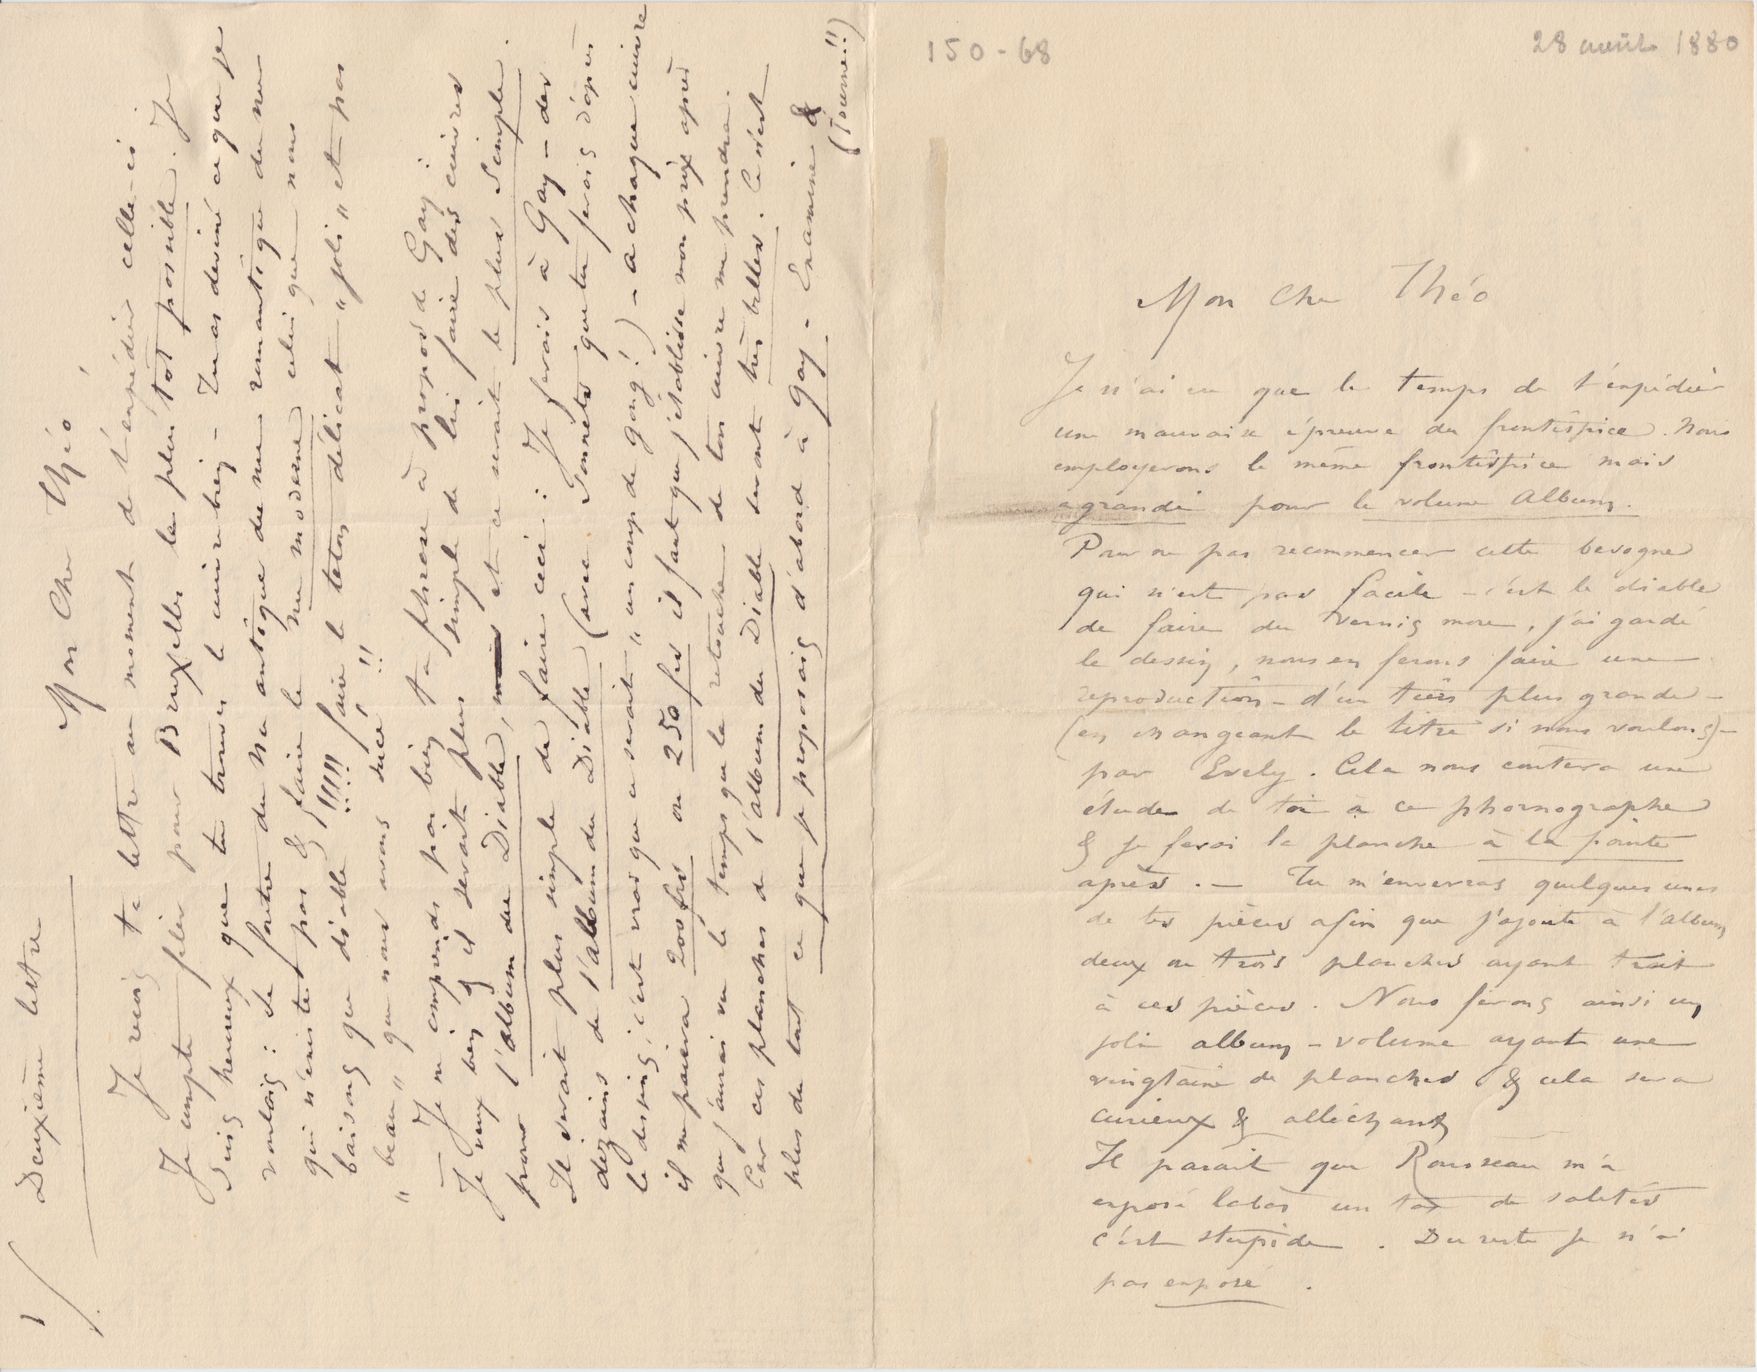 150-68
28 août 1880
Mon Cher Théo
Je n'ai eu que le temps de t'expédier
une mauvaise épreuve du frontispice. Nous
employerons le même frontispice mais
agrandi pour le volume Album.
Pour ne pas recommencer cette besogne
qui n'est pas facile – c'est le diable
de faire du vernis mou, j'ai gardé
le dessin, nous en ferons faire une
reproduction – d'un tiers plus grande –
(en changeant le titre si nous voulons) –
par Evely. Cela nous coutera une
étude de toi à ce phornographe
& je ferai la planche à la pointe
après. — Tu m'enverras quelques unes
de tes pièces afin que j'ajoute à l'album
deux ou trois planches ayant trait
à ces pièces. Nous ferons ainsi un
joli album – volume ayant une
vingtaine de planches & cela sera
curieux & alléchant
Il parait que Rousseau m'a
exposé labas un tas de saletés
c'est stupide. Du reste je n'ai
pas exposé.
1/
Deuxième lettre
Mon Cher Théo,
Je reçois ta lettre au moment de t'expédier celle-ci
Je compte filer pour Bruxelles le plus tôt possible. Je
suis heureux que tu trouves le cuivre bien – Tu as deviné ce que je
voulais : se foutre du nu antique du nu romantique du nu
qui n'existe pas & faire le nu moderne celui que nous
baisons que diable !!!!! faire le teton délicat „joli" et pas
„beau" que nous avons sucé !!
– Je ne comprends pas bien ta phrase à propos de Gay
Je veux bien & il serait plus simple de lui faire des cuivres
pour l'album du Diable, et ce serait le plus simple.
Il serait plus simple de faire ceci : Je ferais à Gay – des
dizains de l'album du Diable (avec Sonnets que tu ferais d'après
le dessin, c'est vrai que ce serait „un coup de gong!) – à chaque cuivre
il me paiera 200 frs ou 250 frs il faut que j'établisse mon prix après
que j'aurai vu le temps que la retouche de ton cuivre me prendra.
Car ces planches de l'album du Diable seront très belles. Ce n'est
plus du tout ce que je proposais d'abord à Gay – Examine &
(Tourne!!)